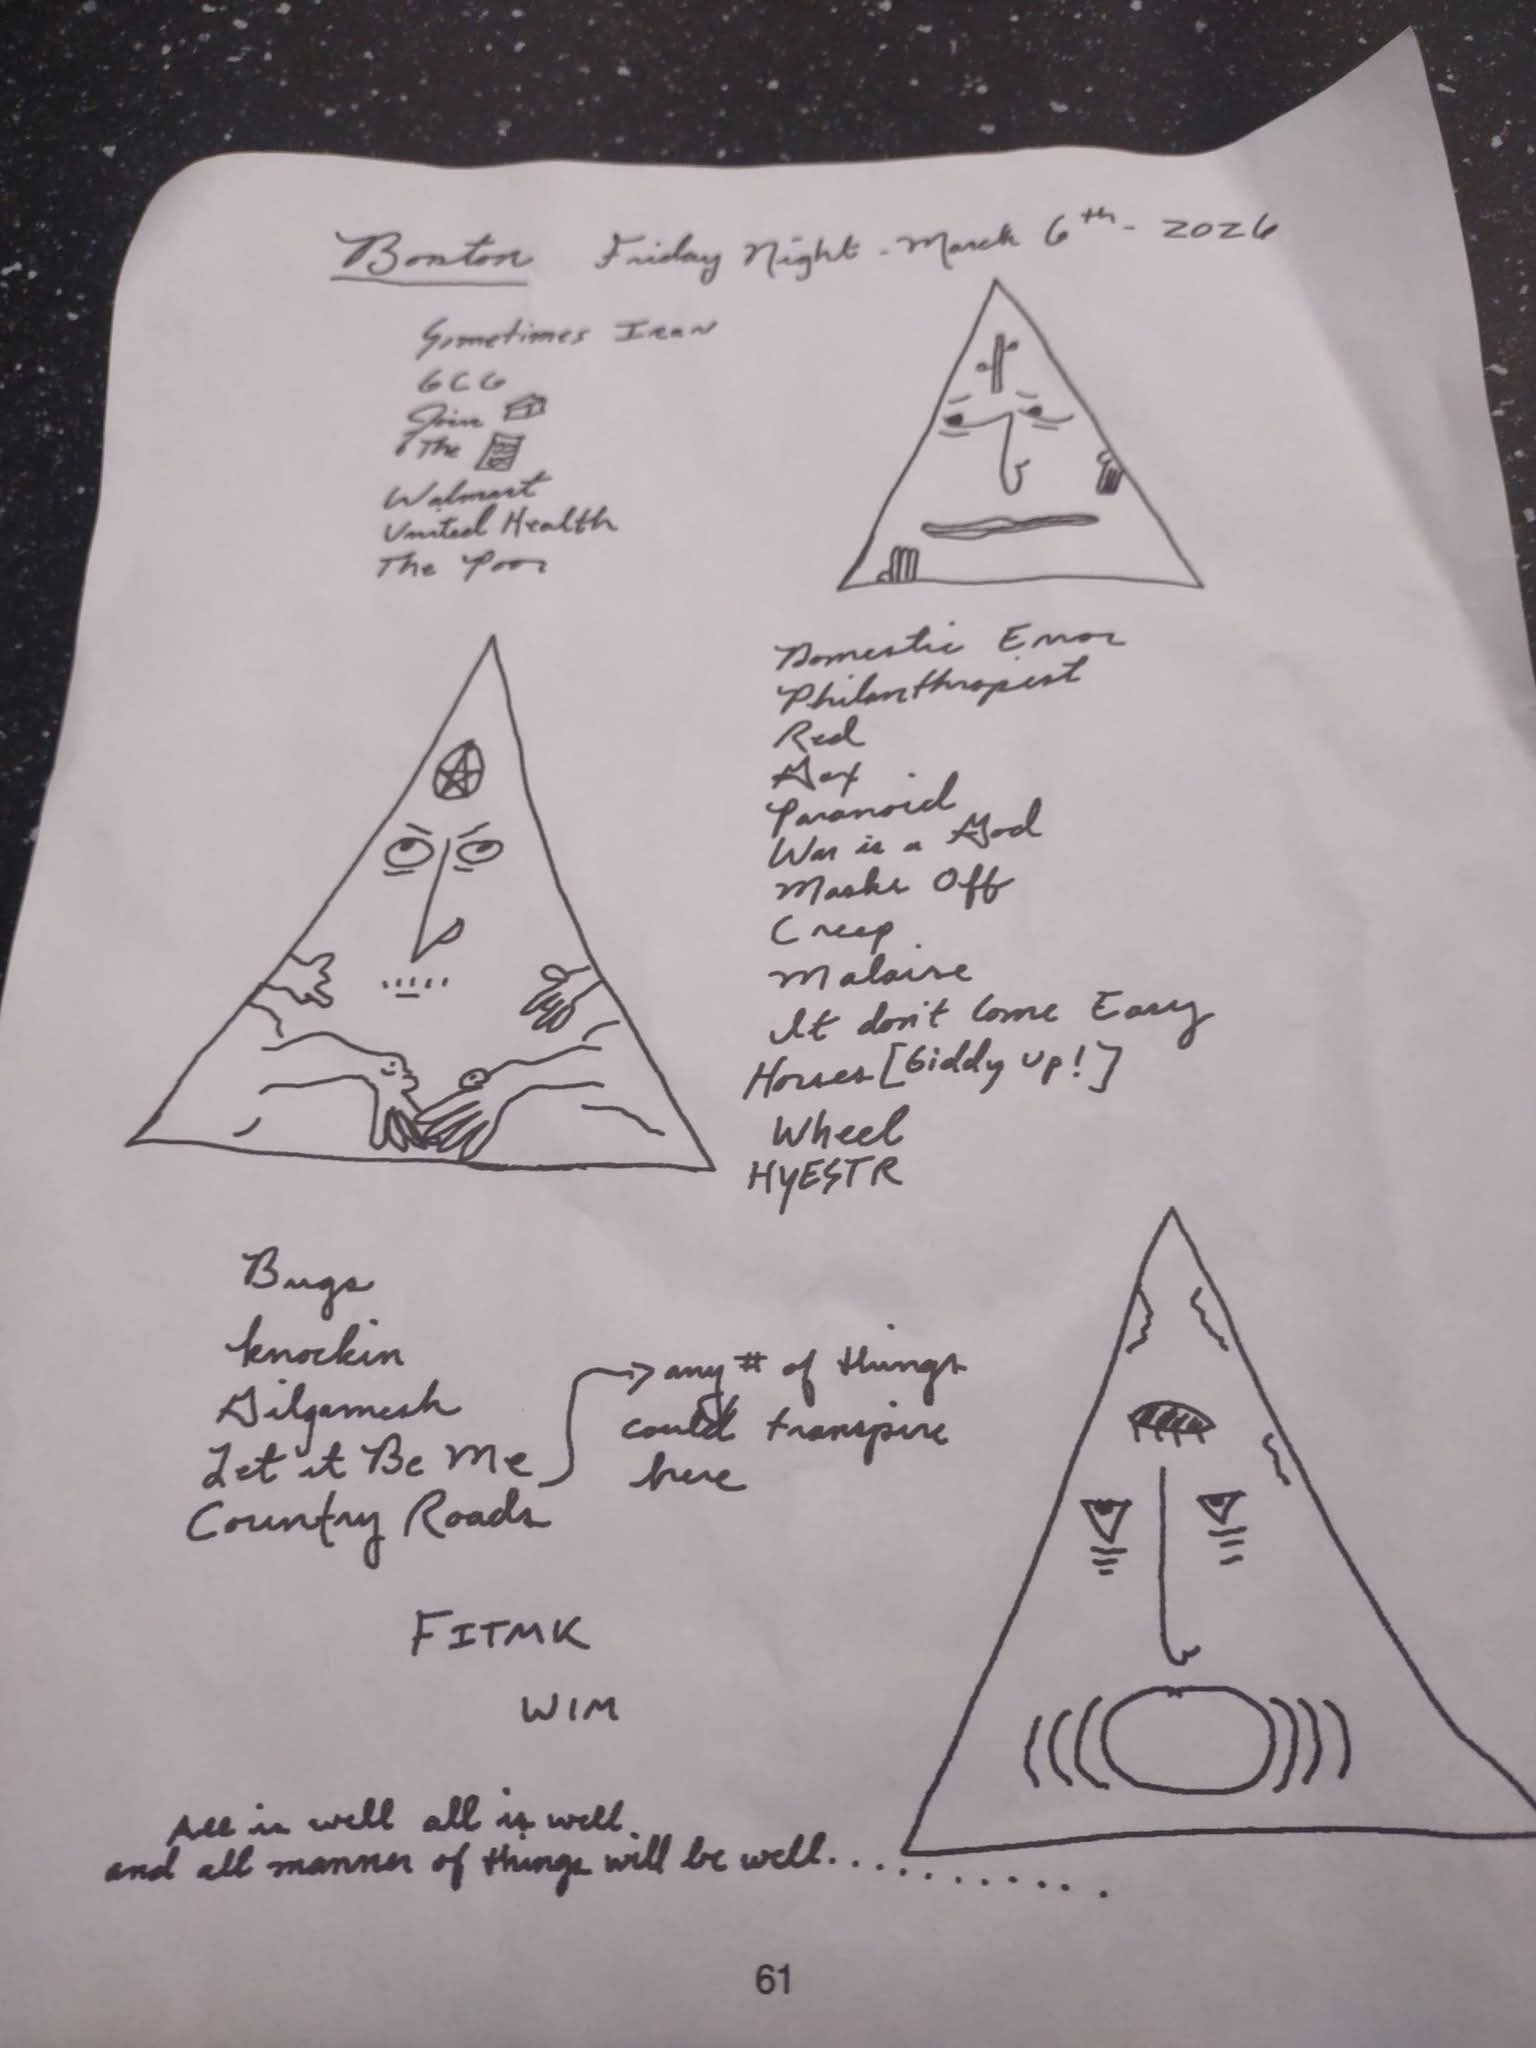 Boston Friday Night - March 6th - 2026
Sometimes Iran
GCG
Join
The
Walmart
United Health
The Poor
Domestic Error
Philanthropist
Red
Gox
Paranoid
War is a God
Masks Off
Creep
Malaise
It don't Come Easy
Horses [Giddy Up!]
Wheel
HYESTR
Bugs
Knockin
Gilgamesh
Let it Be Me
Country Roads
any # of things
could transpire
here
FITMK
WIM
All is well all is well.
and all manner of things will be well..............
61